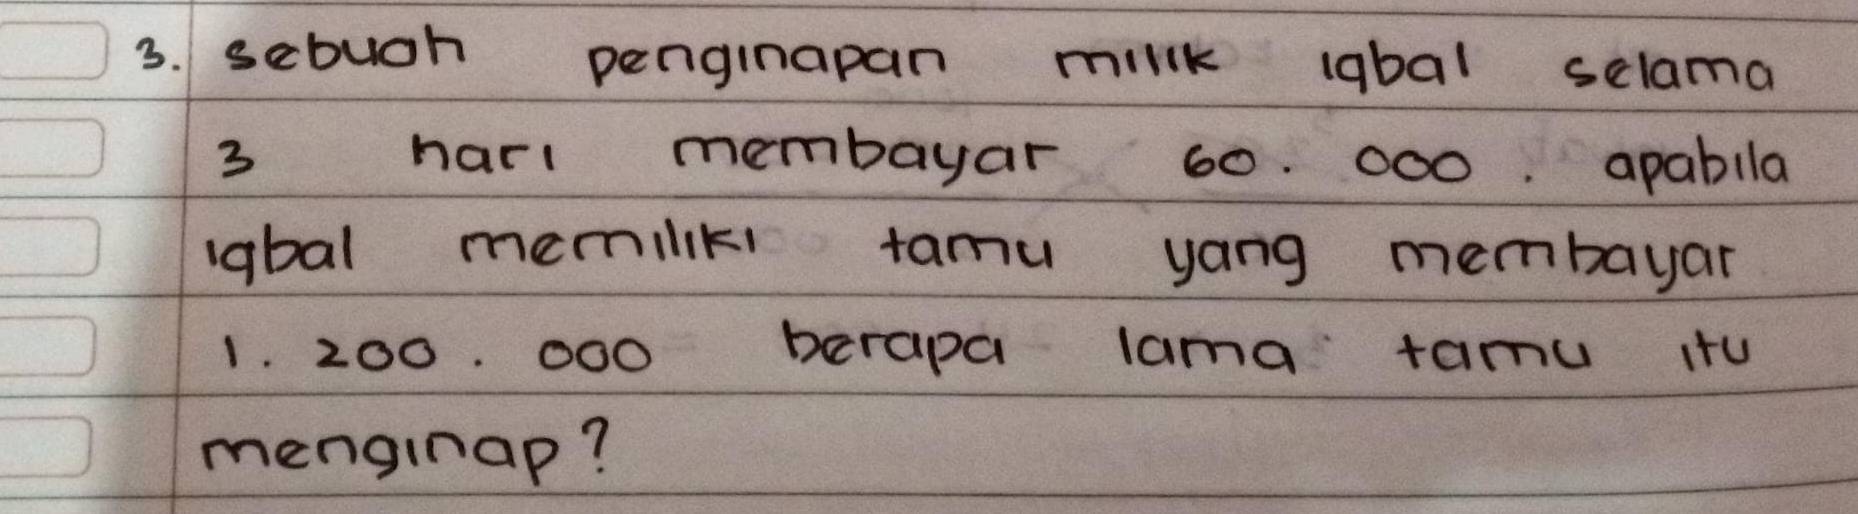 3. sebuah penginapan milik iqbal selama
3 hari membayar 60.000. apabila
iqbal memiliki tamu yang membayar
1.200.000 berapa lama tamu itu
menginap?